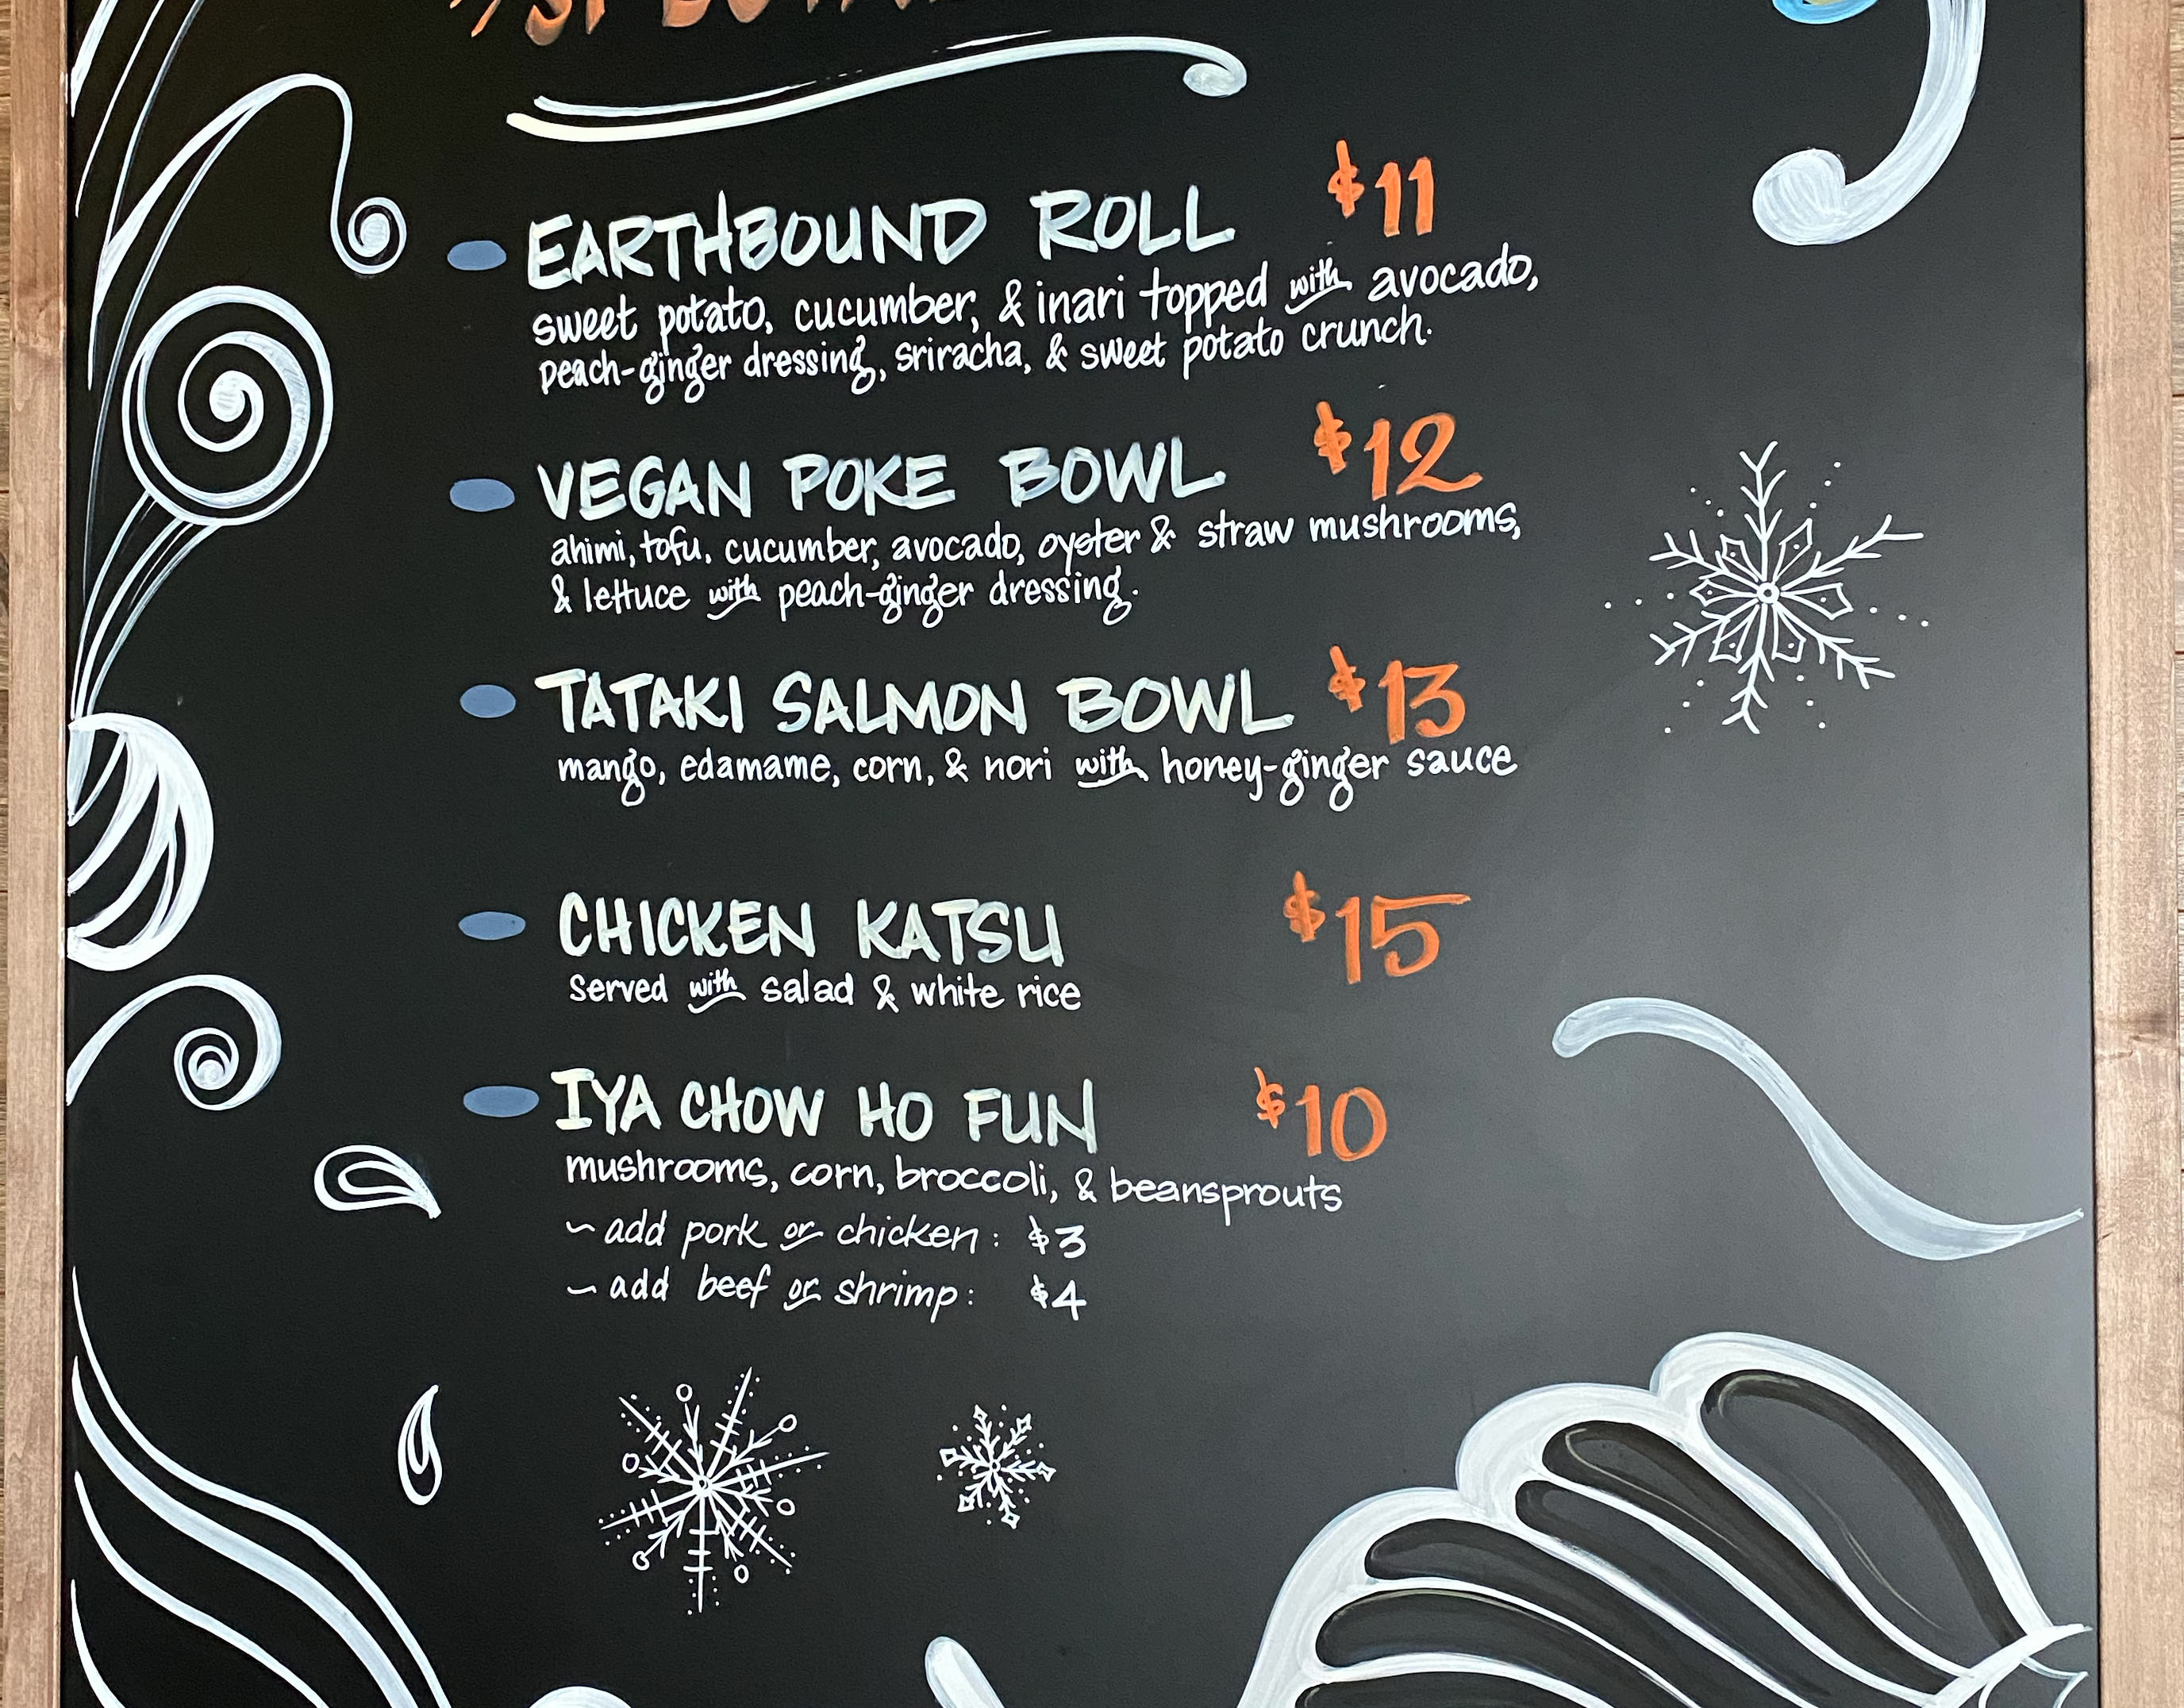 EARTHBOUND ROLL $11
sweet potato, cucumber, & inari topped with avocado,
peach-ginger dressing, sriracha, & sweet potato crunch.
VEGAN POKE BOWL $12
ahimi, tofu, cucumber, avocado, oyster & straw mushrooms,
& lettuce with peach-ginger dressing.
TATAKI SALMON BOWL $13
mango, edamame, corn, & nori with honey-ginger sauce
CHICKEN KATSU $15
served with salad & white rice
IYA CHOW HO FUN $10
mushrooms, corn, broccoli, & beansprouts
~ add pork or chicken: $3
~ add beef or shrimp: $4